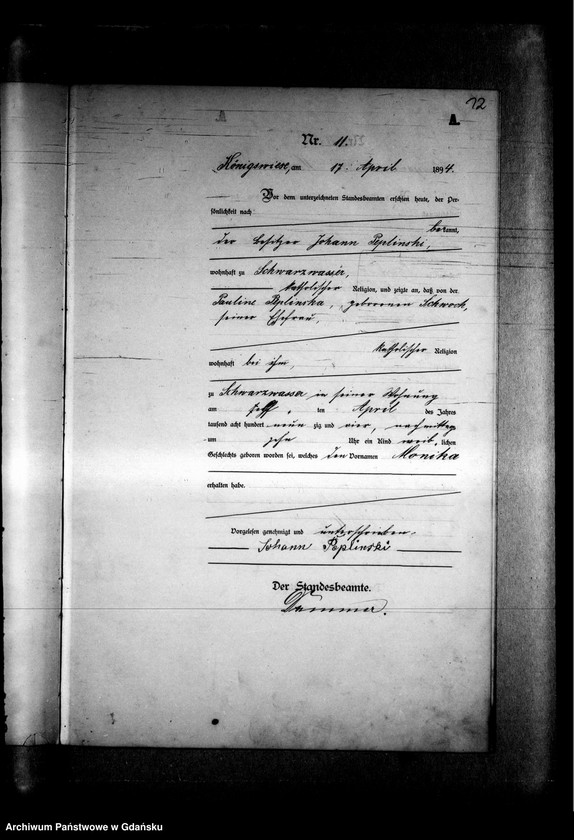 12
A.
Nr. 11.
Königswiese, am 17. April 1894.
Vor dem unterzeichneten Standesbeamten erschien heute, der Per-
sönlichkeit nach
bekannt,
der Besitzer Johann Peplinski,
wohnhaft zu Schwarzwasser,
katholischer Religion, und zeigte an, daß von der
Pauline Peplinska, geborenen Schwoch,
seiner Ehefrau,
katholischer Religion
wohnhaft bei ihm,
zu Schwarzwasser in seiner Wohnung
am ten April des Jahres
tausend acht hundert neun zig und vier, nachmittags
um zehn Uhr ein Kind weib lichen
Geschlechts geboren worden sei, welches den Vornamen Monika
erhalten habe.
Vorgelesen genehmigt und unterschrieben.
Johann Peplinski
Der Standesbeamte.
Archiwum Państwowe w Gdańsku